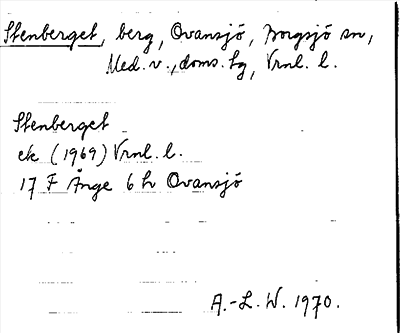 Stenberget, berg, Ovansjö, Borgsjö sn,
Med. v., doms. tg, Vrnl. l.
Stenberget
ek (1969) Vrnl. l.
17 F Ånge 6 h Ovansjö
A.-L. W. 1970.